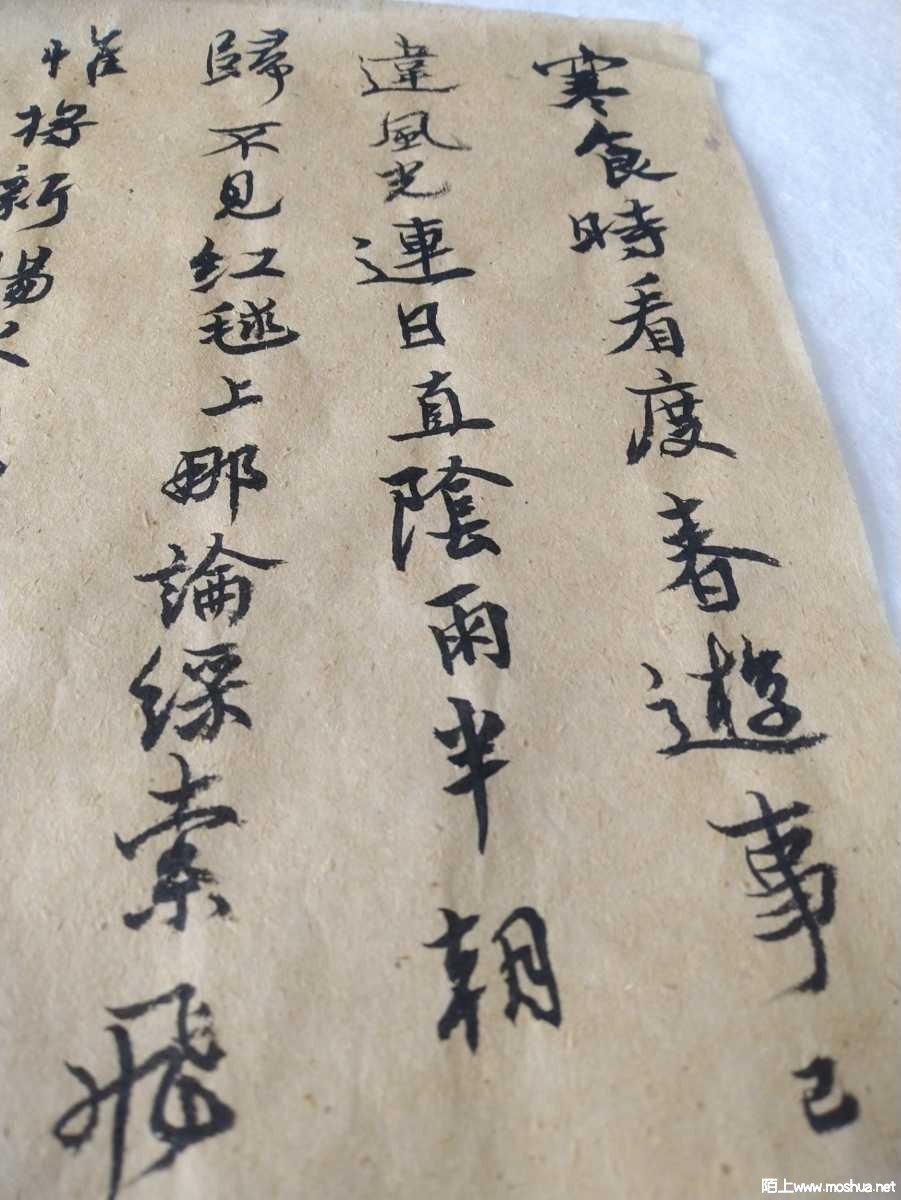 寒食時看度春遊事已
違風光連日直陰雨半朝
歸不見紅毬上那論綵索飛
惟將新賜火
陌上www.moshua.net